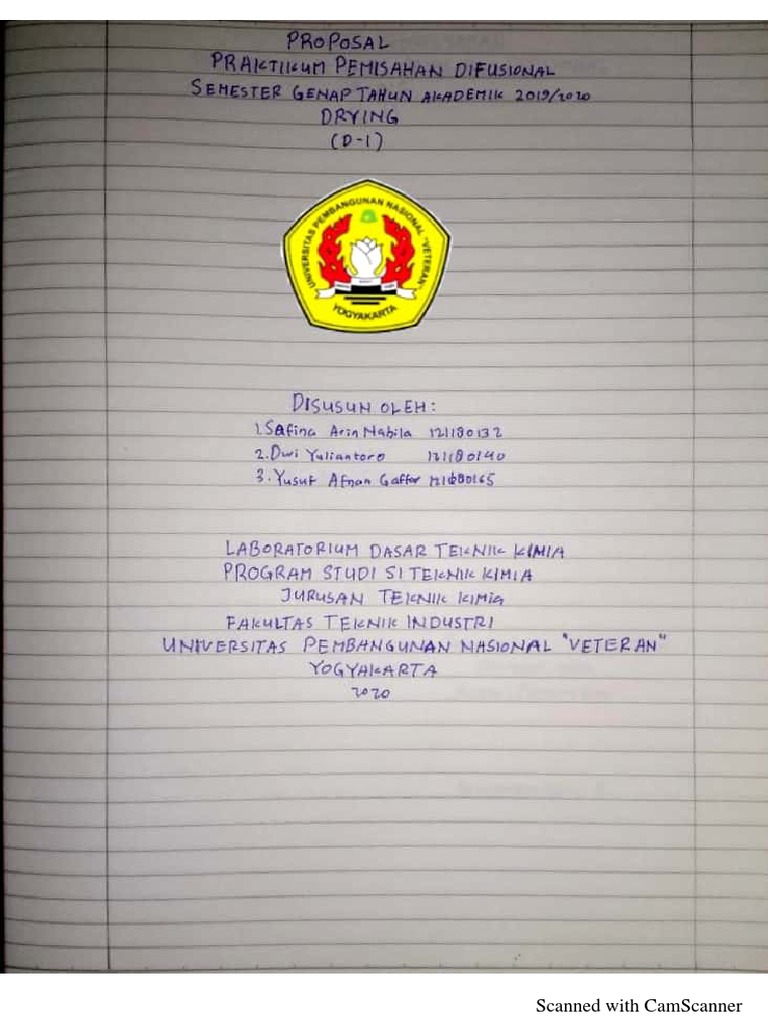 PROPOSAL
PRAKTIKUM PEMISAHAN DIFUSIONAL
SEMESTER GENAP TAHUN AKADEMIK 2019/2020
DRYING
(D-1)
UNIVERSITAS PEMBANGUNAN NASIONAL "VETERAN"
YOGYAKARTA
DISUSUN OLEH:
1. Safina Arin Nabila 121180132
2. Dwi Yuliantoro 121180140
3. Yusuf Afnan Gaffor 121180165
LABORATORIUM DASAR TEKNIK KIMIA
PROGRAM STUDI S1 TEKNIK KIMIA
JURUSAN TEKNIK KIMIA
FAKULTAS TEKNIK INDUSTRI
UNIVERSITAS PEMBANGUNAN NASIONAL "VETERAN"
YOGYAKARTA
2020
Scanned with CamScanner